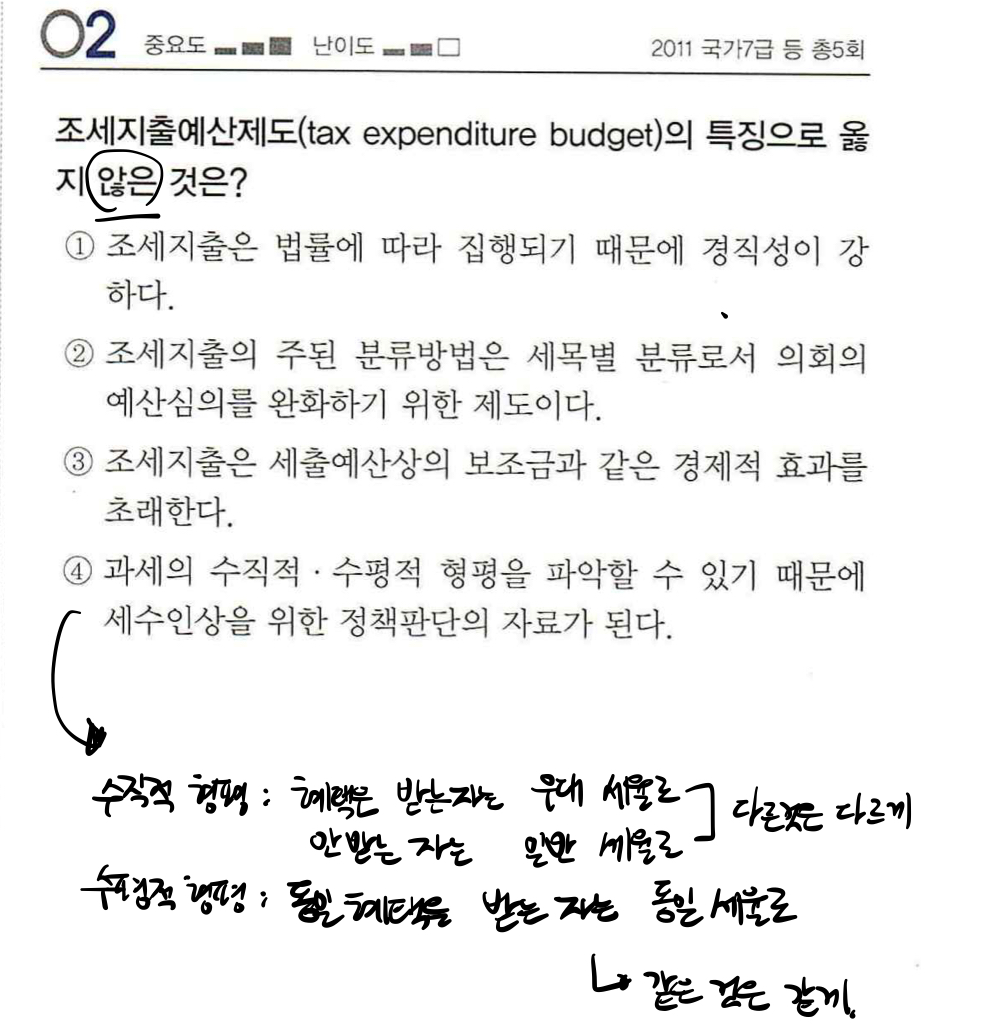 02 중요도 난이도 2011 국가7급 등 총5회
조세지출예산제도(tax expenditure budget)의 특징으로 옳
지 않은 것은?
① 조세지출은 법률에 따라 집행되기 때문에 경직성이 강
하다.
② 조세지출의 주된 분류방법은 세목별 분류로서 의회의
예산심의를 완화하기 위한 제도이다.
③ 조세지출은 세출예산상의 보조금과 같은 경제적 효과를
초래한다.
④ 과세의 수직적·수평적 형평을 파악할 수 있기 때문에
세수인상을 위한 정책판단의 자료가 된다.
수직적 형평 : 혜택은 받는자는 우대 세율로
안받는 자는 일반 세율로
다른것은 다르게
수평적 형평 : 동일 혜택을 받는 자는 동일 세율로
같은 것은 같게.